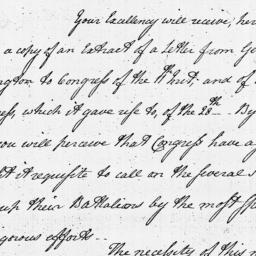 Your Excellency will receive, her
a copy of an extract of a Letter from Ge
ington to Congress of the 11th Inst; and of
ress, which it gave rise to, of the 28th. By
you will perceive that Congress have a
t it requisite to call on the several s
up their Battalions by the most sp
gorous efforts..
The necessity of this m